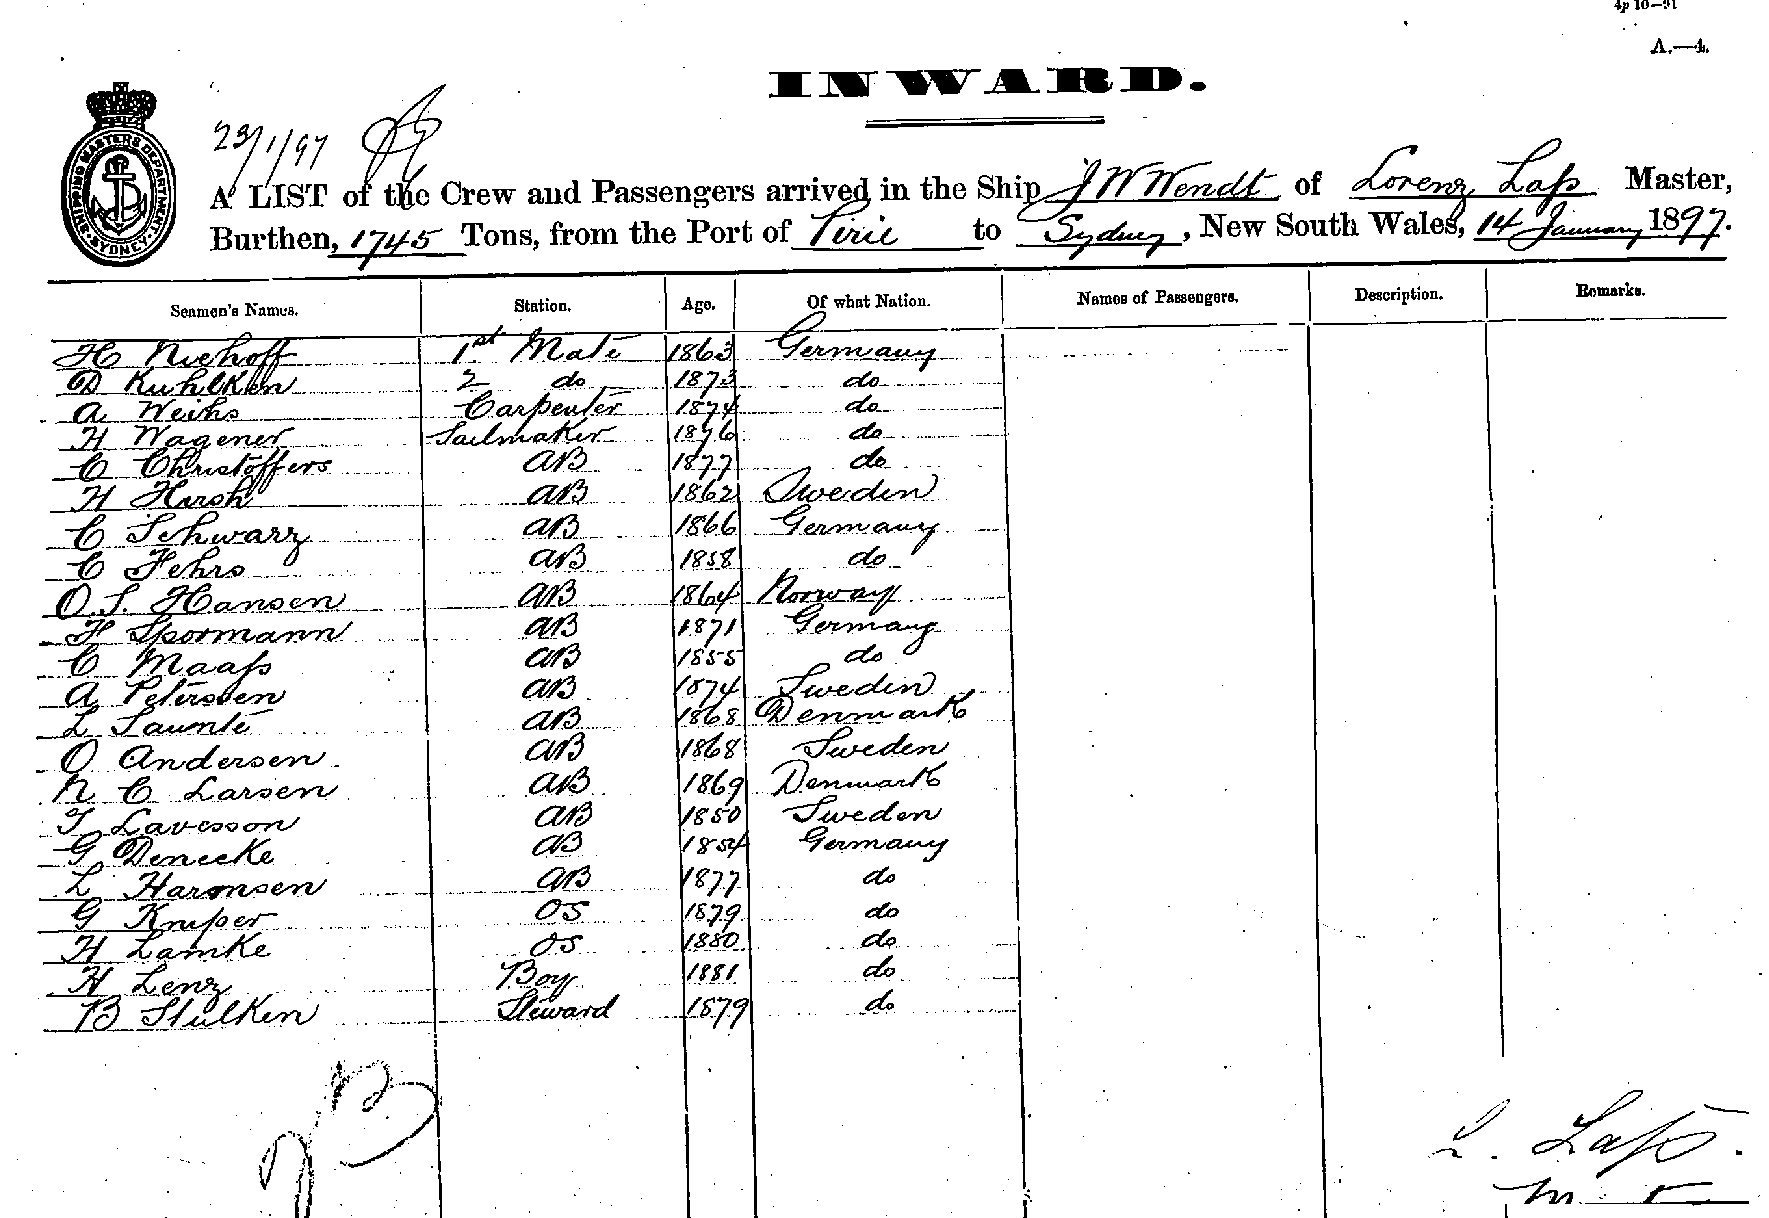 4p 10—91
A.—4.
INWARD.
23/1/97
SHIPPING MASTERS DEPARTMENT. SYDNEY
A LIST of the Crew and Passengers arrived in the Ship J W Wendt of Lorenz Laſs Master,
Burthen, 1745 Tons, from the Port of Pirie to Sydney, New South Wales, 14 January 1897.
Seamen's Names. Station. Age. Of what Nation. Names of Passengers. Description. Remarks.
H Niehoff 1st Mate 1863 Germany
D Kuhlken 2 do 1873 do
A Weihs Carpenter 1874 do
H Wagener Sailmaker 1876 do
C Christoffers AB 1877 do
H Hirsh AB 1862 Sweden
C Schwarz AB 1866 Germany
C Fehrs AB 1858 do
O. S. Hansen AB 1864 Norway
H Spormann AB 1871 Germany
C Maaſs AB 1855 do
A Peterssen AB 1874 Sweden
L Saunte AB 1868 Denmark
O Andersen AB 1868 Sweden
N C Larsen AB 1869 Denmark
T Lavesson AB 1850 Sweden
G Denecke AB 1854 Germany
L Harmsen AB 1877 do
G OS 1879 do
H Lamke OS 1880 do
H Lenz Boy 1881 do
B Stulken Steward 1879 do
L. Laſs.